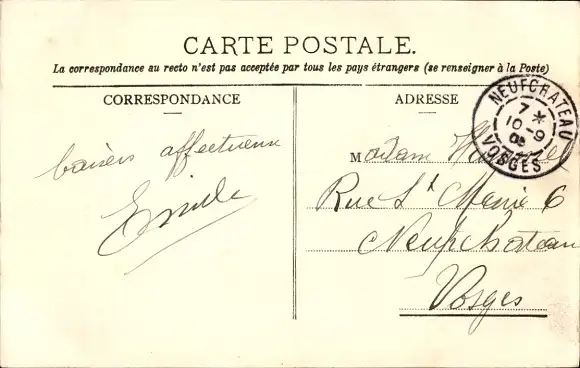 CARTE POSTALE.
La correspondance au recto n'est pas acceptée par tous les pays étrangers (se renseigner à la Poste)
CORRESPONDANCE
baisers affectueux
Emile
ADRESSE
Madam
Rue St Marie 6
Neufchateau
Vosges
NEUFCHATEAU
7 *
10 - 9
VOSGES